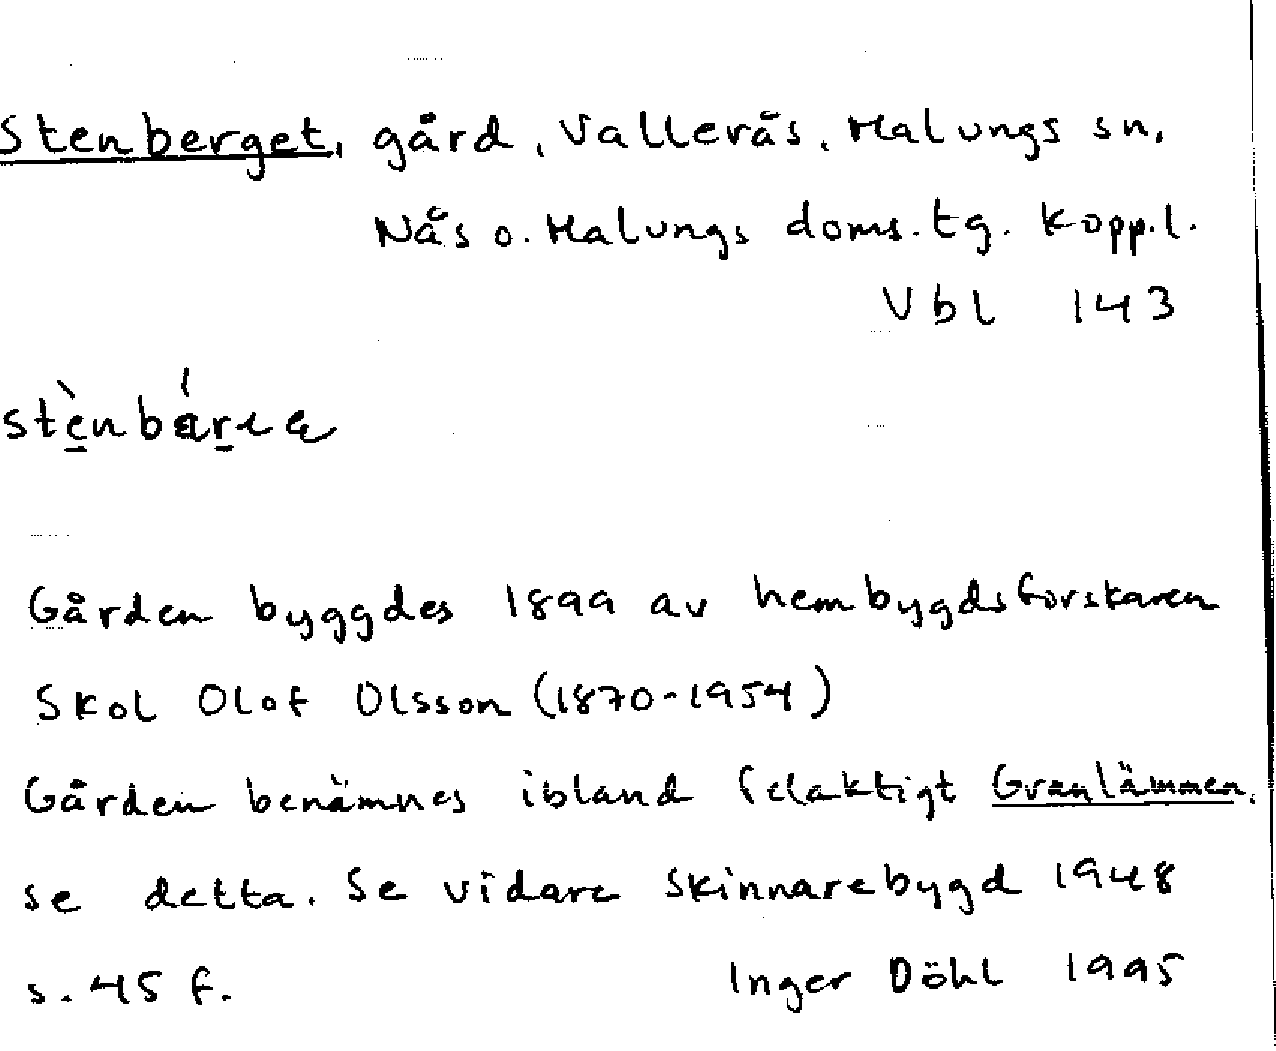 Stenberget, gård, Vallerås, Malungs sn,
Nås o. Malungs doms.tg. Kopp.l.
Vbl 143
Gården byggdes 1899 av hembygdsforskaren
Skol Olof Olsson (1870-1954)
Gården benämnes ibland felaktigt Granlämmen,
se detta. Se vidare Skinnarebygd 1948
s. 45 f. Inger Döhl 1995